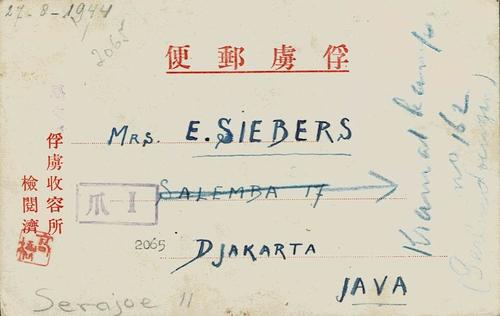 27-8-1944
2065
俘虜郵便
MRS. E. SIEBERS
SALEMBA 17
2065
DJAKARTA
JAVA
俘虜收容所
檢閱濟
爪-I
Kramat kamp
no 162
Serajoe 11